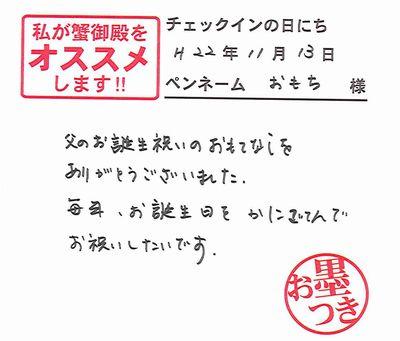 私が蟹御殿を
オススメ
します!!
チェックインの日にち
H22年11月13日
ペンネーム おもち 様
父のお誕生祝いのおもてなしを
ありがとうございました.
毎年、お誕生日を かにごてんで
お祝いしたいです.
お墨つき